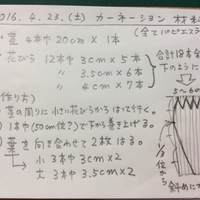 2016. 4. 23.(土) カーネーション 材料
(全てパピエスティ
茎 4本や 20cm × 1本
花びら 12本や 3cm × 5本
〃 3.5cm × 6本
〃 4cm × 7本
合計18本全
下のように
5~6の
(作り方)
茎の周りに小さい花びらからはって行く。
1本や(50cm位?)で下から巻き上げる。
葉を向き合わせて2枚はる。
小 3本や 3cm×2
大 3本や 3.5cm×2
1/3位から
斜めに